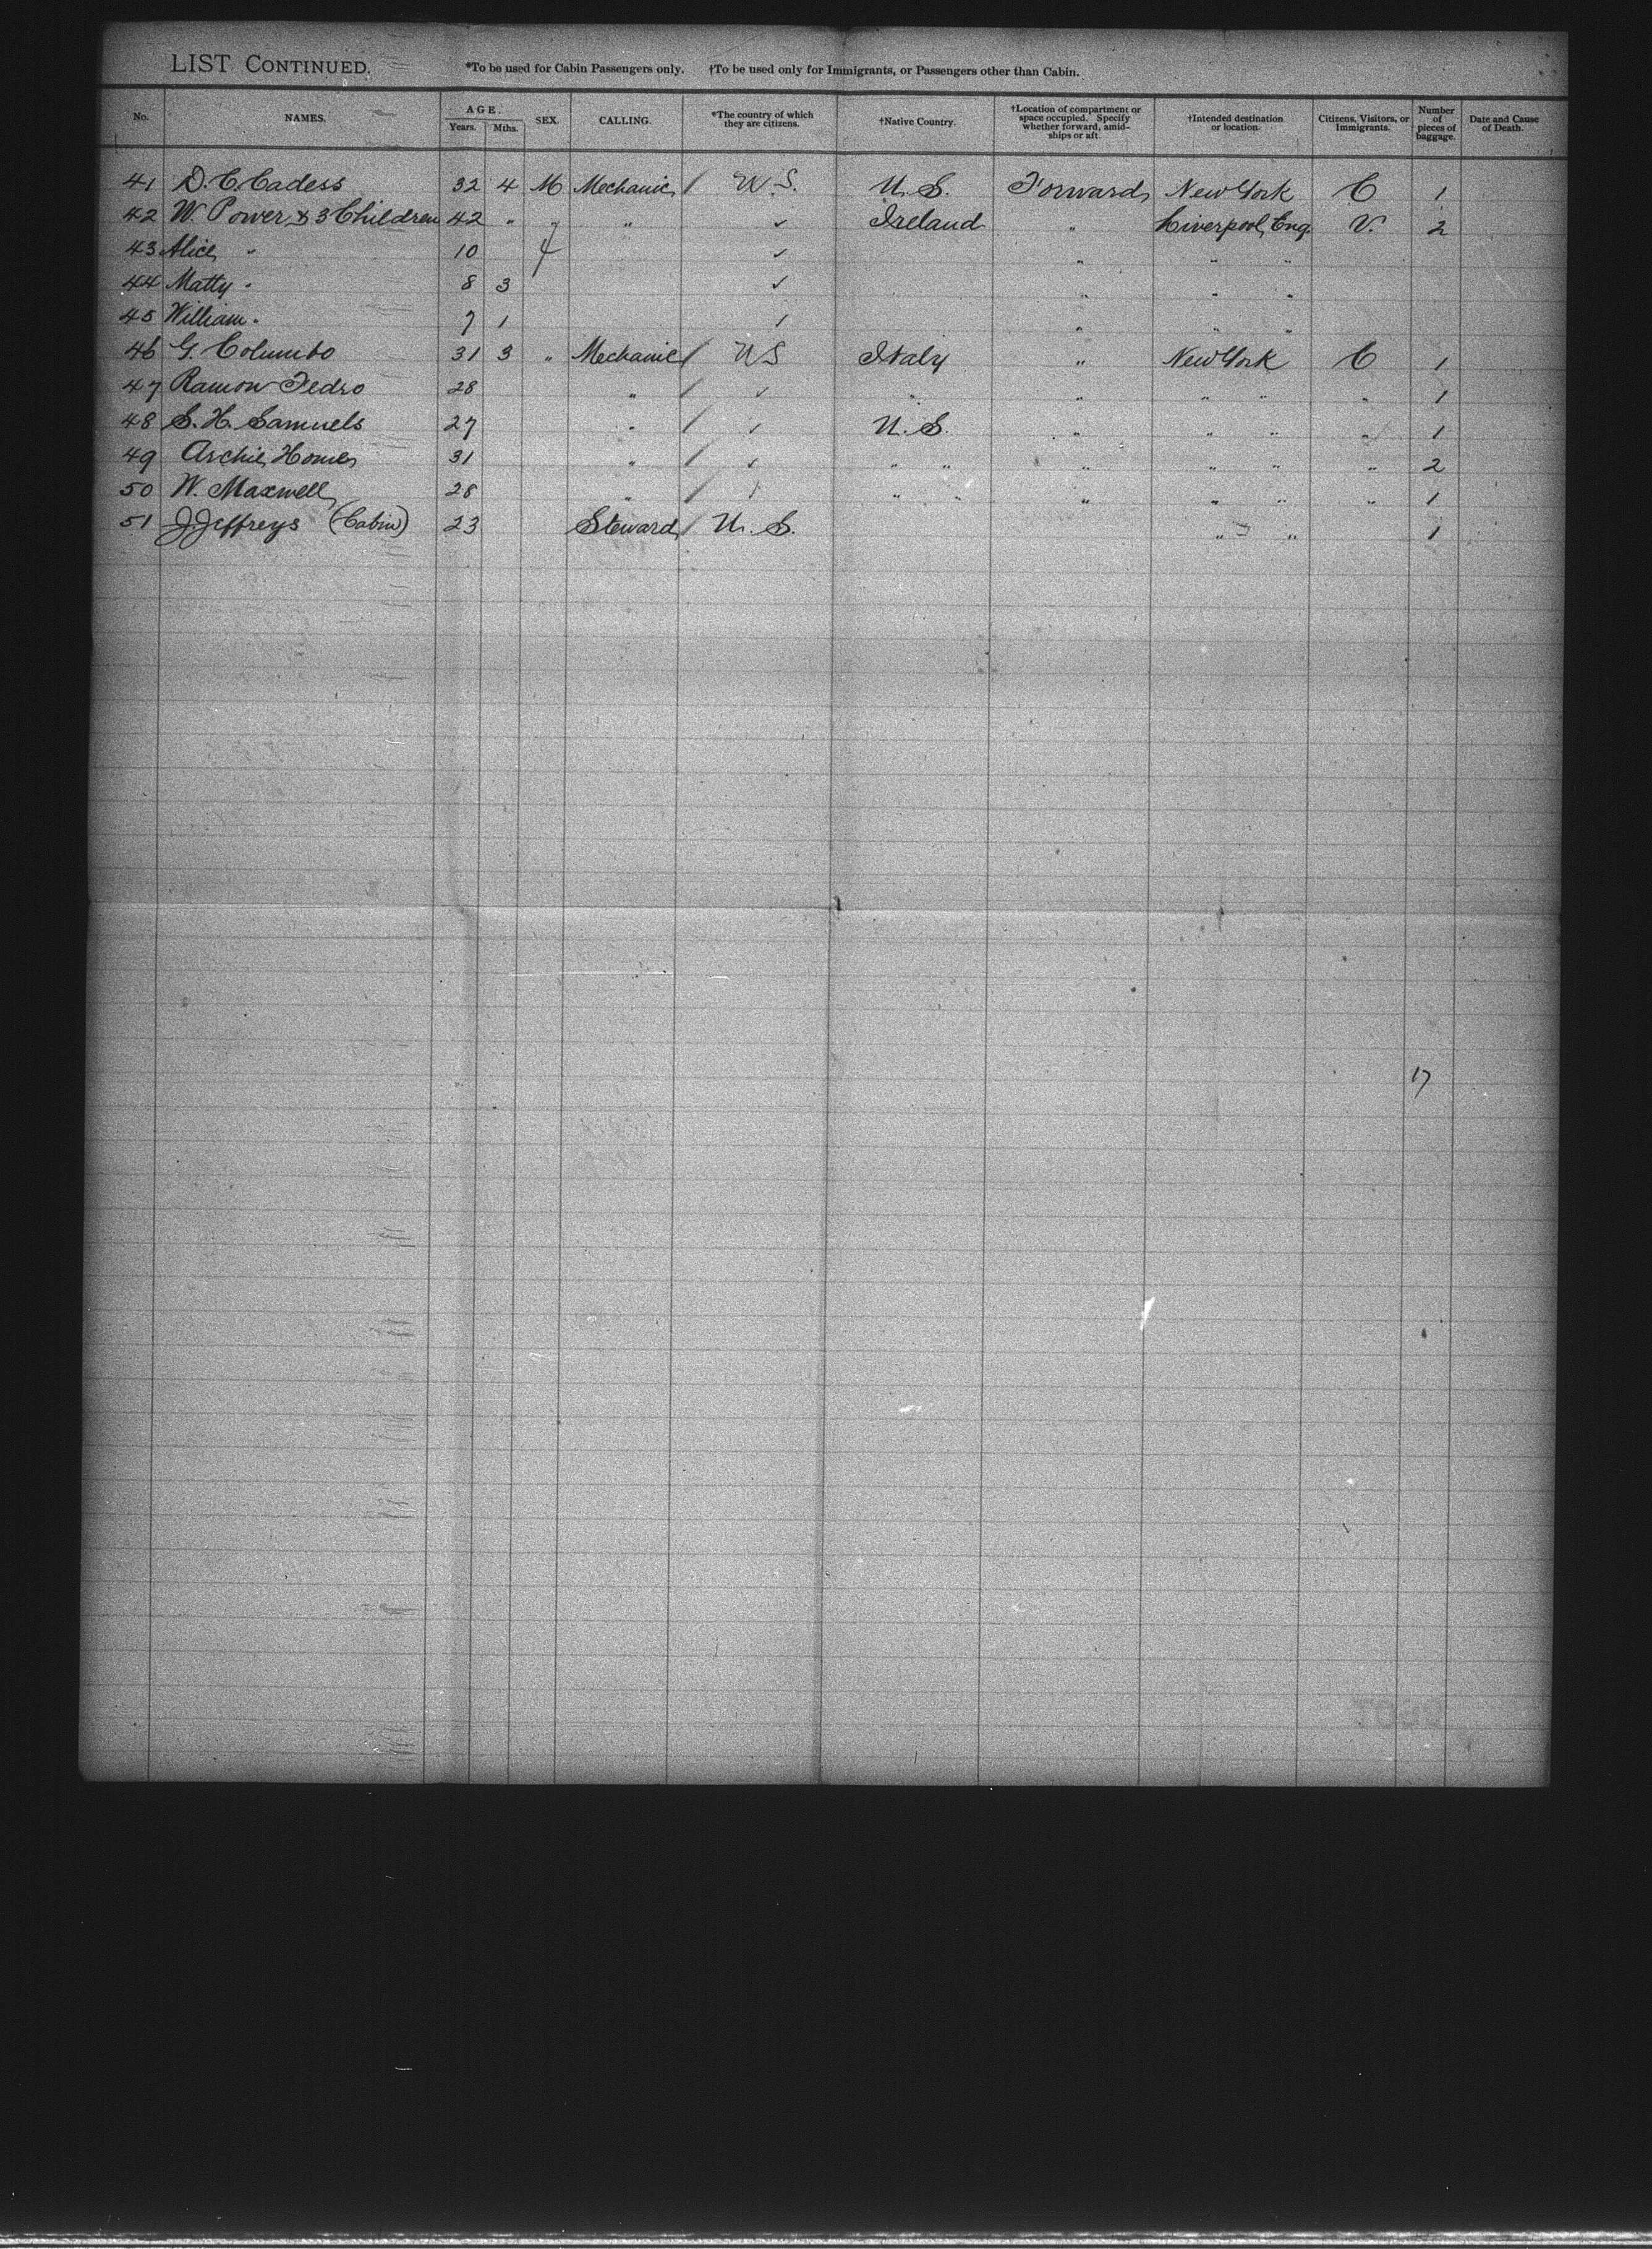 LIST CONTINUED. *To be used for Cabin Passengers only. †To be used only for Immigrants, or Passengers other than Cabin.
No. NAMES. AGE. Years. Mths. SEX. CALLING. *The country of which they are citizens. †Native Country. †Location of compartment or space occupied. Specify whether forward, amidships or aft. †Intended destination or location. Citizens, Visitors, or Immigrants. Number of pieces of baggage. Date and Cause of Death.
41 D. C. Cadess 32 4 M Mechanic / U.S. U.S. Forward New York C 1
42 W. Power & 3 Children 42 " " " ✓ Ireland " Liverpool, Eng. V. 2
43 Alice " 10 f ✓ " " "
44 Matty " 8 3 ✓ " " "
45 William " 7 1 / " " "
46 G. Columbo 31 3 " Mechanic / US Italy " New York C 1
47 Ramon Pedro 28 " / ✓ " " " " " 1
48 S. H. Samuels 27 " / ✓ U.S. " " " " 1
49 Archie Homes 31 " / ✓ " " " " " " 2
50 W. Maxwell 28 " / ✓ " " " " " " 1
51 J. Jeffreys (Cabin) 23 Steward / U.S. " " 1
17